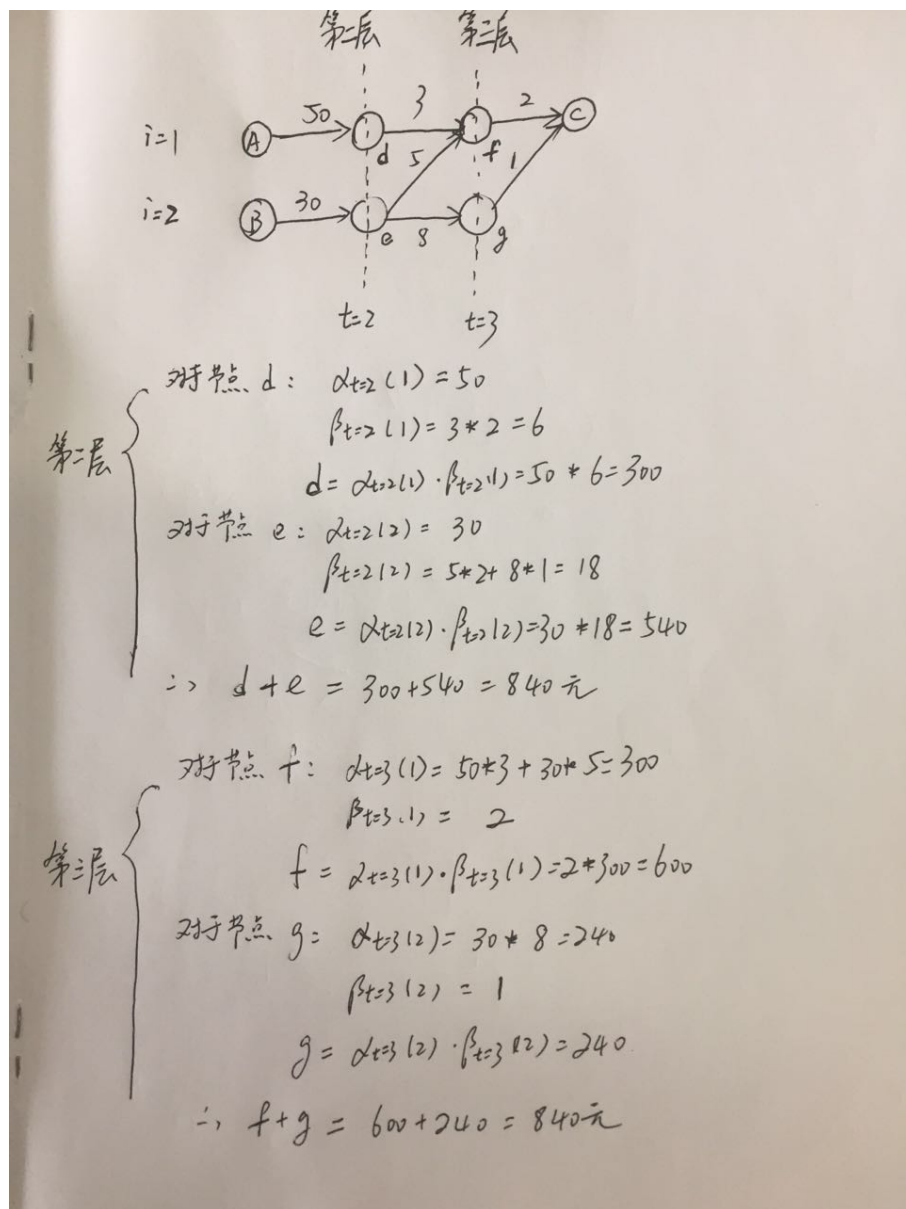 第二层 第三层
i=1 A 50 d 3 f 2 C
5 1
i=2 B 30 e 8 g
t=2 t=3
对于节点 d: αt=2(1)=50
βt=2(1)=3*2=6
第二层
d=αt=2(1)·βt=2(1)=50*6=300
对于节点 e: αt=2(2)=30
βt=2(2)=5*2+8*1=18
e=αt=2(2)·βt=2(2)=30*18=540
∴ d+e=300+540=840元
对于节点 f: αt=3(1)=50*3+30*5=300
βt=3(1)=2
第三层
f=αt=3(1)·βt=3(1)=2*300=600
对于节点 g: αt=3(2)=30*8=240
βt=3(2)=1
g=αt=3(2)·βt=3(2)=240
∴ f+g=600+240=840元